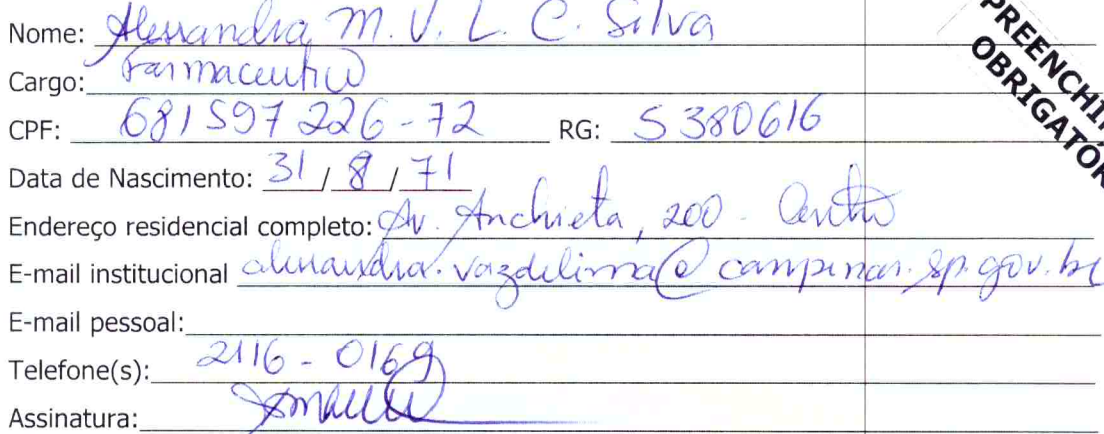 Nome: Alessandra M. V. L. C. Silva
PREENCHI
OBRIGATÓR
Cargo: Farmaceutico
CPF: 681597226-72 RG: 5380616
Data de Nascimento: 31 / 8 / 71
Endereço residencial completo: Av. Anchieta, 200 - Centro
E-mail institucional alessandra.vazdelima@campinas.sp.gov.br
E-mail pessoal:
Telefone(s): 2116-0169
Assinatura: